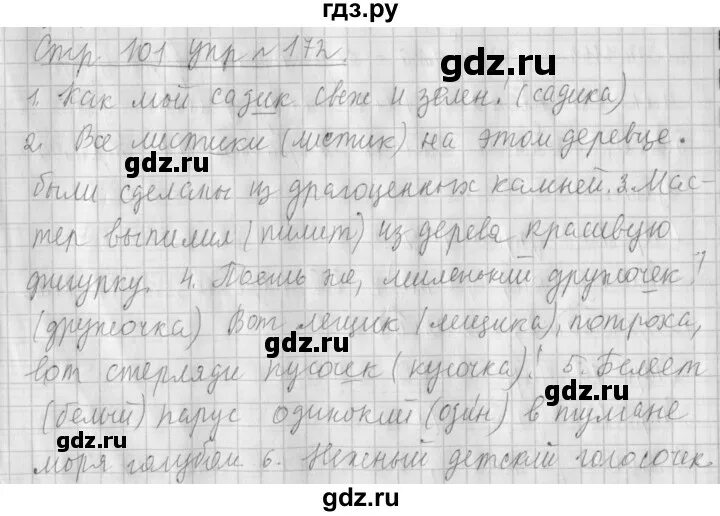 гдз.ру
Стр. 101 упр № 172.
gdz.ru
gdz.ru
1. Как мой садик свеж и зелен! (садика)
2. Все листики (листик) на этом деревце.
gdz.ru
gdz.ru
были сделаны из драгоценных камней. 3. Мас-
тер выпилил (пилит) из дерева красивую
gdz.ru
фигурку. 4. Поешь же, миленький дружочек!
(дружочка) Вот лещик (лещика), потроха,
gdz.ru
вот стерляди кусочек (кусочка)! 5. Белеет
gdz.ru
(белый) парус одинокий (один) в тумане
gdz.ru
моря голубом. 6. Нежный детский голосочек
gdz.ru
gdz.ru